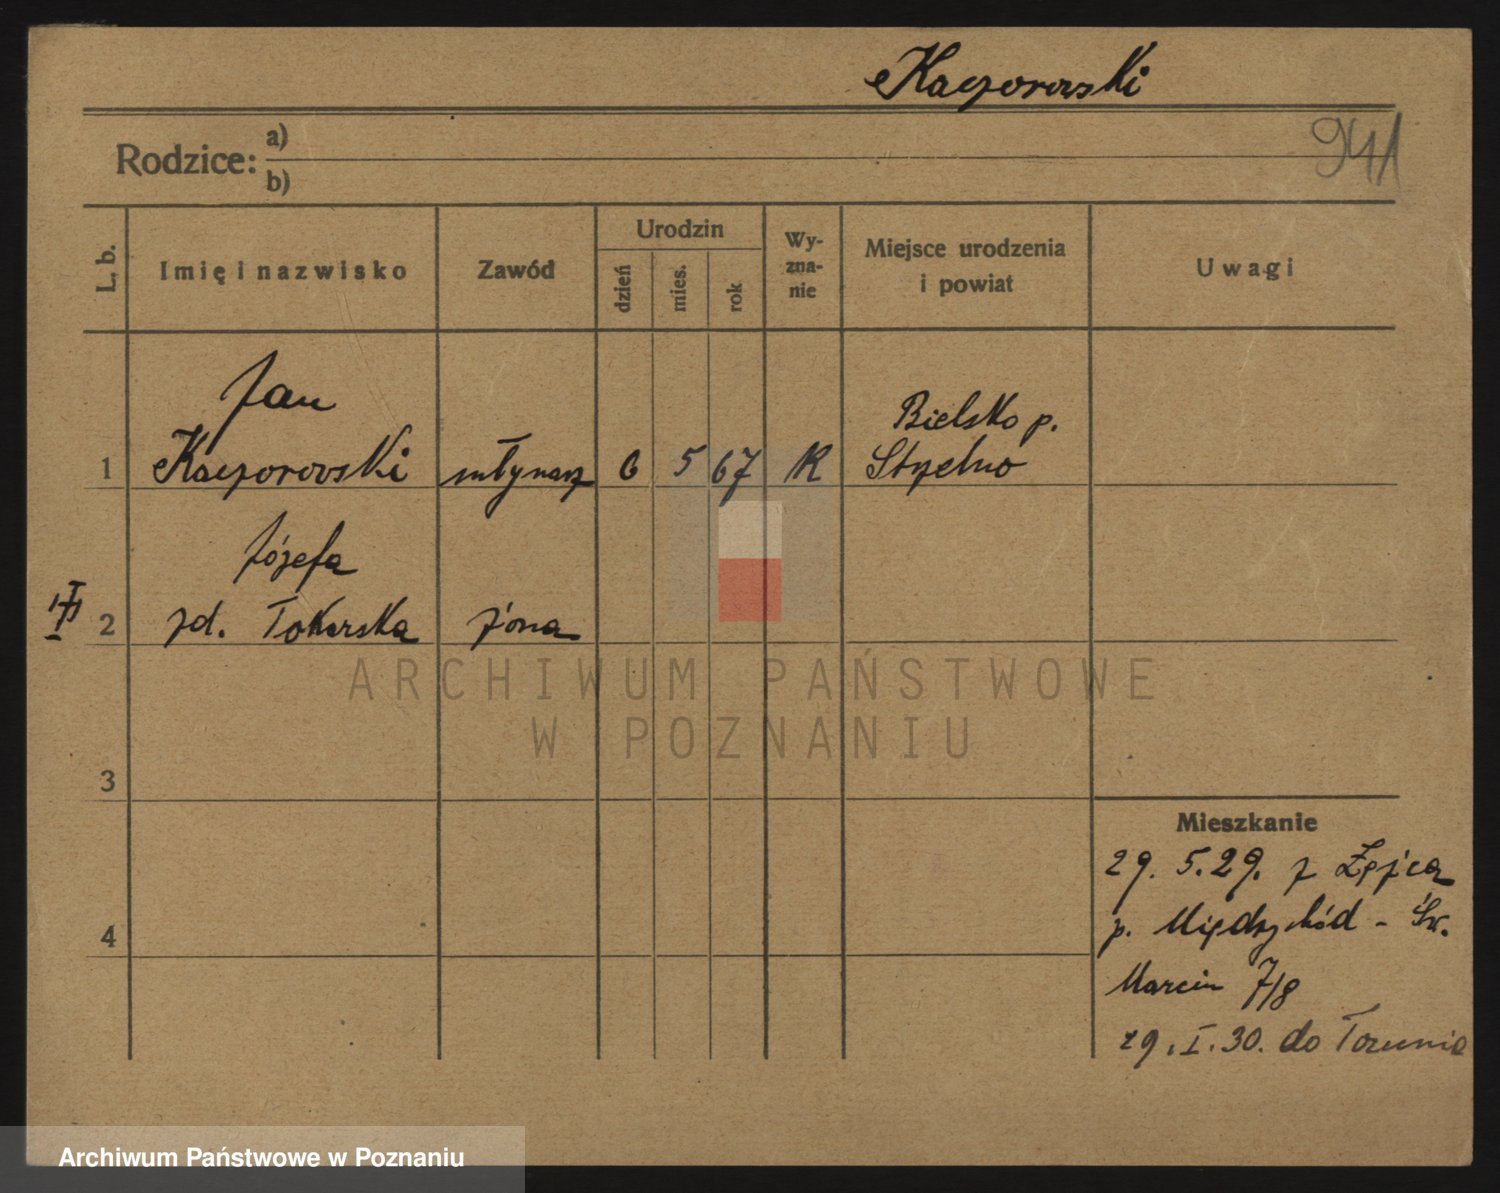 Kaczorowski
941
Rodzice: a)
b)
L. b.
Imię i nazwisko
Zawód
Urodzin
dzień
mies.
rok
Wy-
zna-
nie
Miejsce urodzenia
i powiat
Uwagi
1
Jan
Kaczorowski
młynarz
6
5
67
K
Bielsko p.
Strzelno
2
Józefa
zd. Tokarska
żona
3
4
Mieszkanie
29. 5. 29. z
p. Międzychód - Św.
Marcin 7/8
29. I. 30. do Torunia
ARCHIWUM PAŃSTWOWE
W POZNANIU
Archiwum Państwowe w Poznaniu